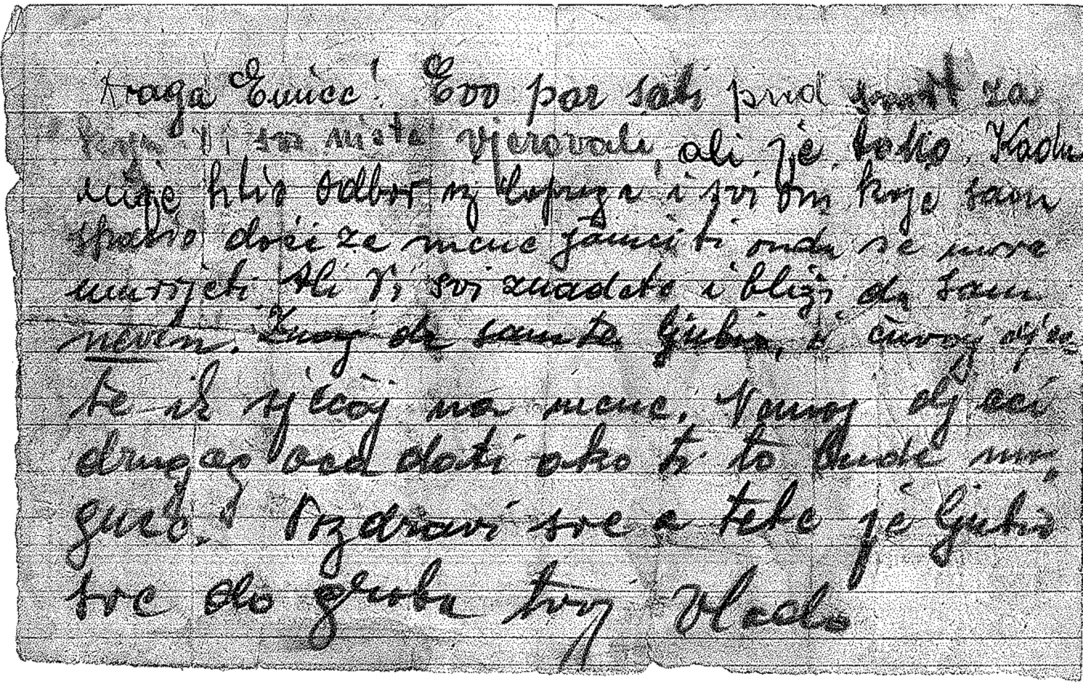 Draga Emico! Evo par sati pred smrt za
koju Vi svi niste vjerovali, ali je tako. Kada
nije htio odbor iz Lopuga i svi oni koje sam
spasio doći za mene jamčiti onda se mora
umrijeti. Ali Vi svi znadete i bližj da sam
nevin. Znaj da sam te ljubio, i čuvaj dje-
te ik sjećaj na mene. Nemoj djeci
drugog oca dati ako ti to bude mo
guće. Pozdravi sve a tebe je ljubio
sve do groba tvoj Vlado